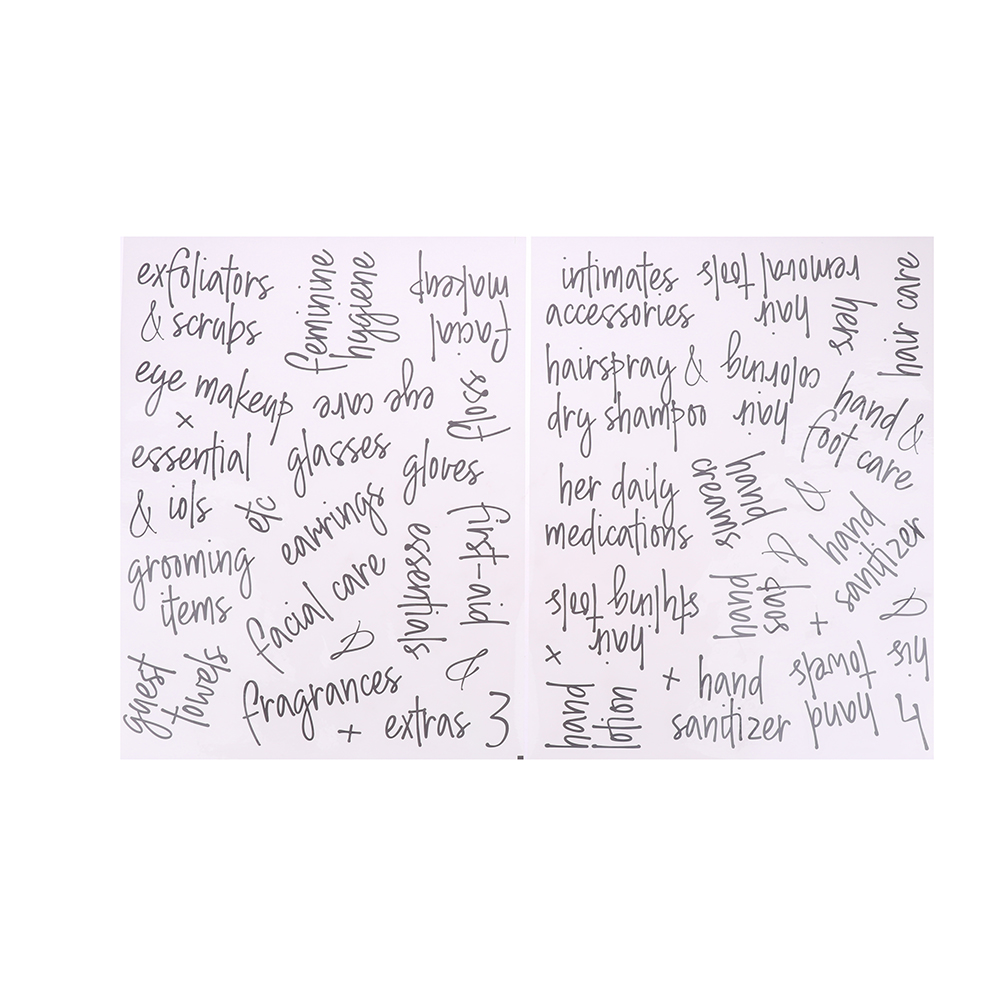 exfoliators
& scrubs
feminine
hygiene
facial
makeup
eye makeup
+
eye care
floss
essential
& iols
glasses
gloves
etc
earrings
essentials
first-aid
grooming
items
facial care
&
guest
towels
fragrances
&
+ extras
3
intimates
accessories
hair
removal tools
hers
hair care
hairspray &
dry shampoo
hair
coloring
hand &
foot care
her daily
medications
hand
creams
&
&
hand
sanitizer
hair
styling tools
+
hand
soap
+
&
hand
lotion
+ hand
sanitizer
hand
towels
his
4